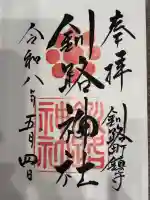 奉拝
釧路町鎮守
釧路神社
令和八年五月四日
釧路神社